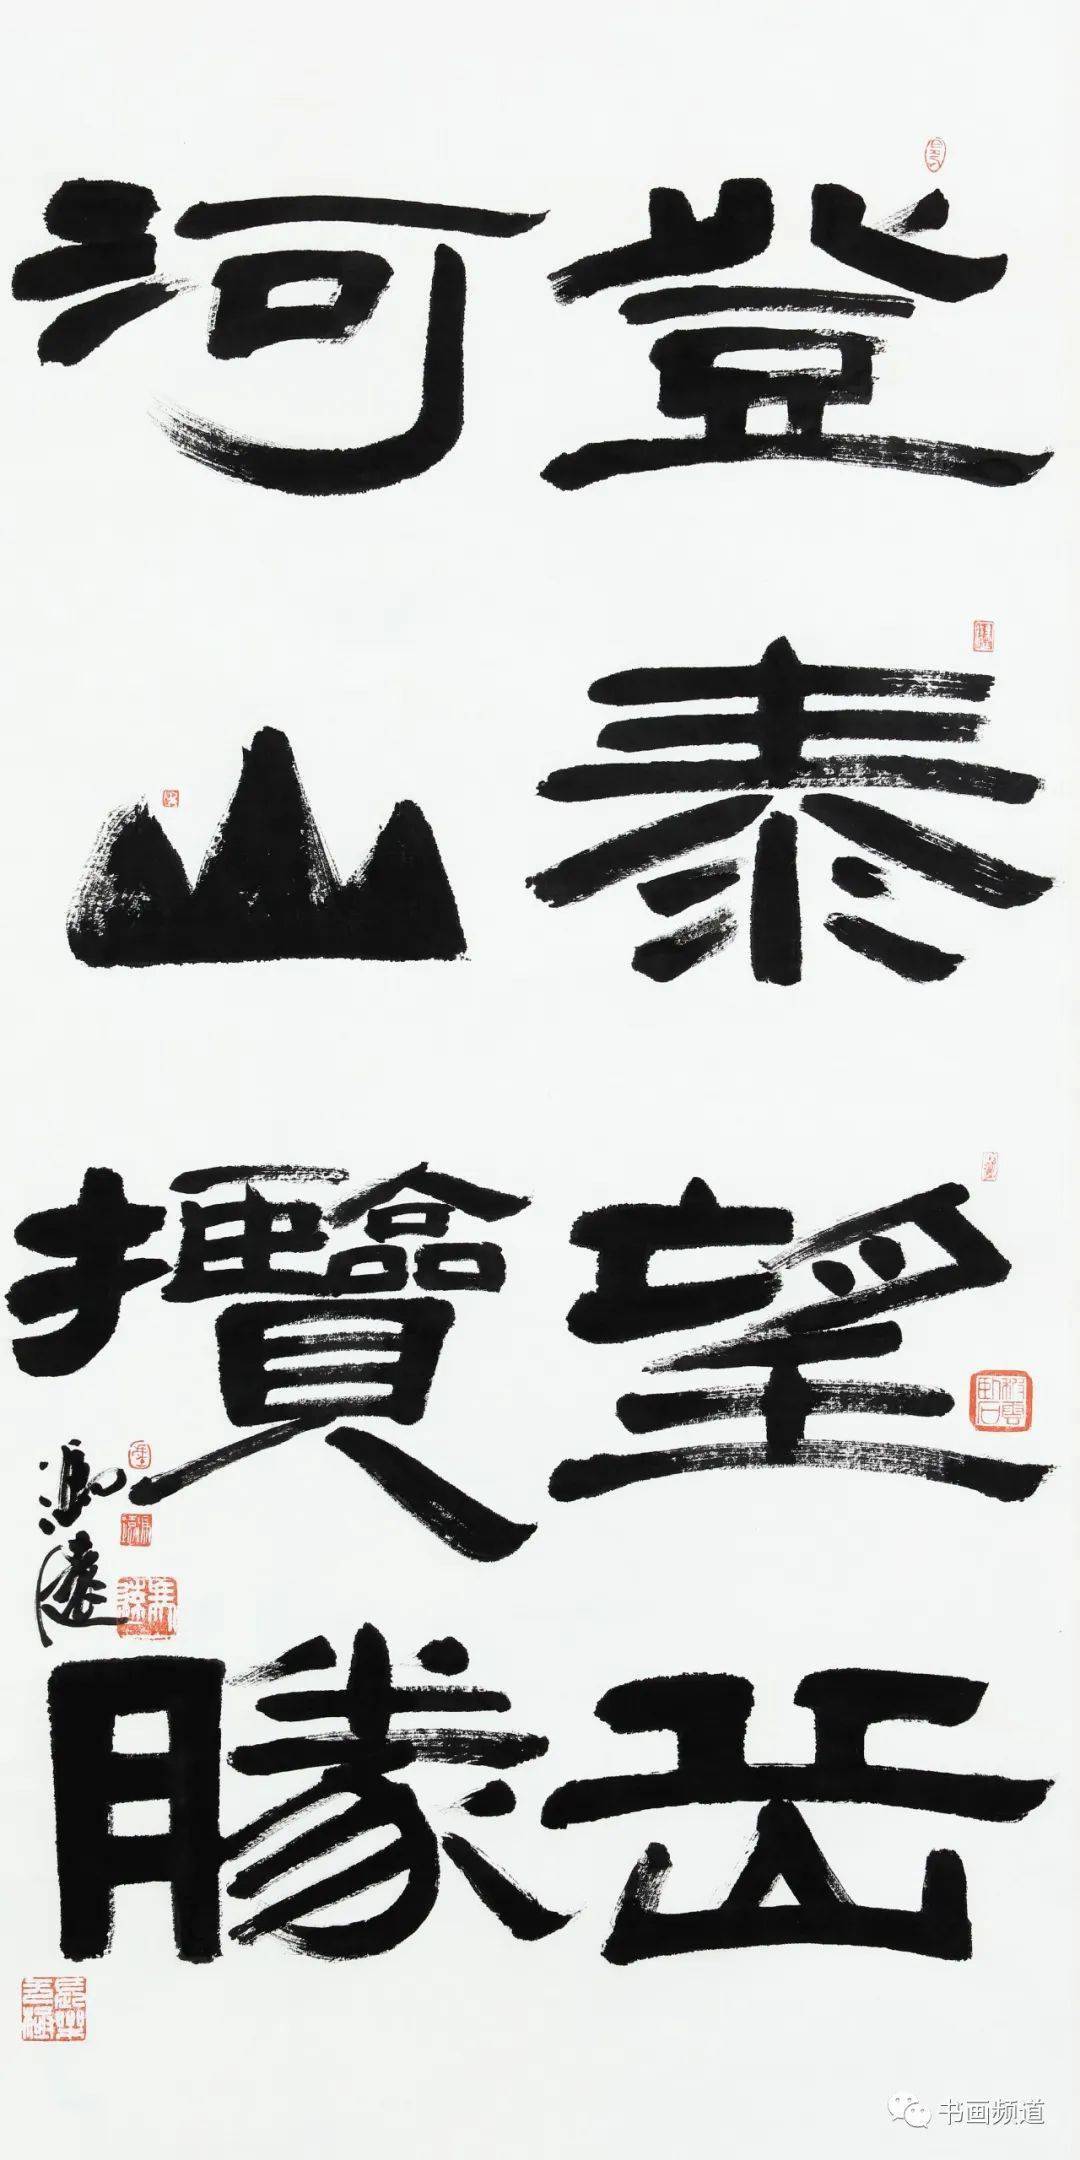 登泰望岳
河山攬勝
馮遠
书画频道